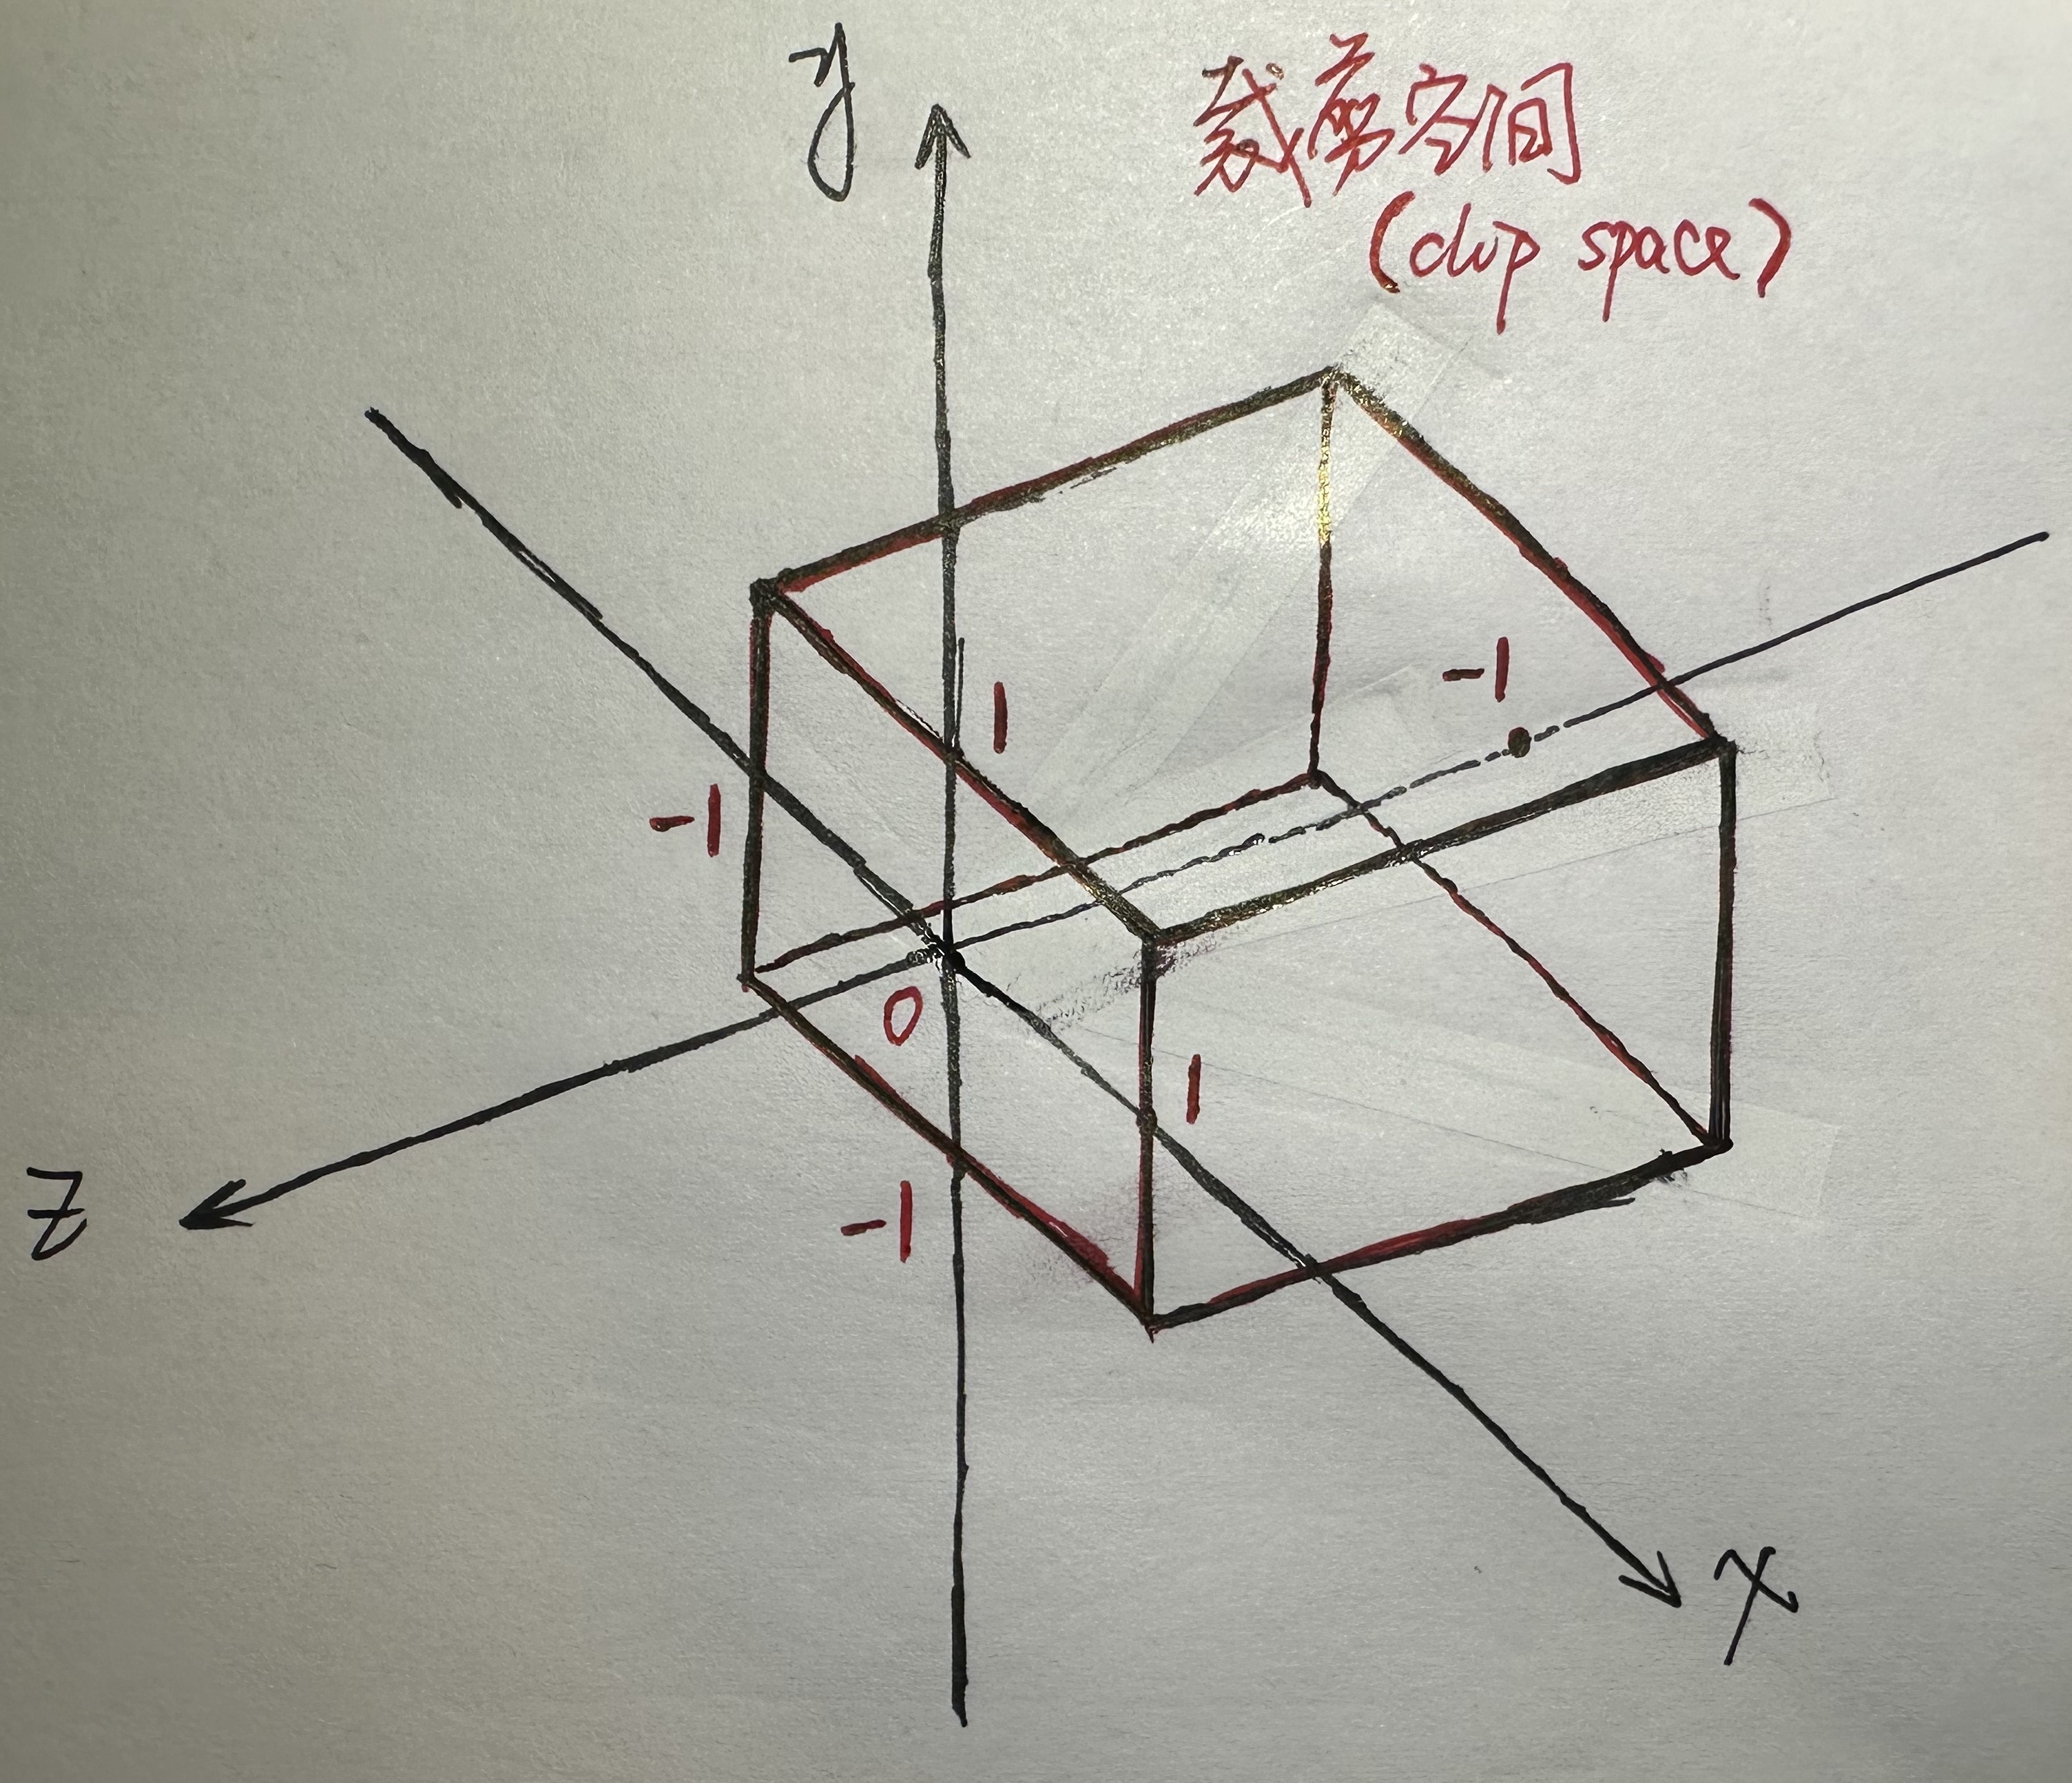 y
裁剪空间
(clip space)
1
-1
-1
0
1
z
-1
x